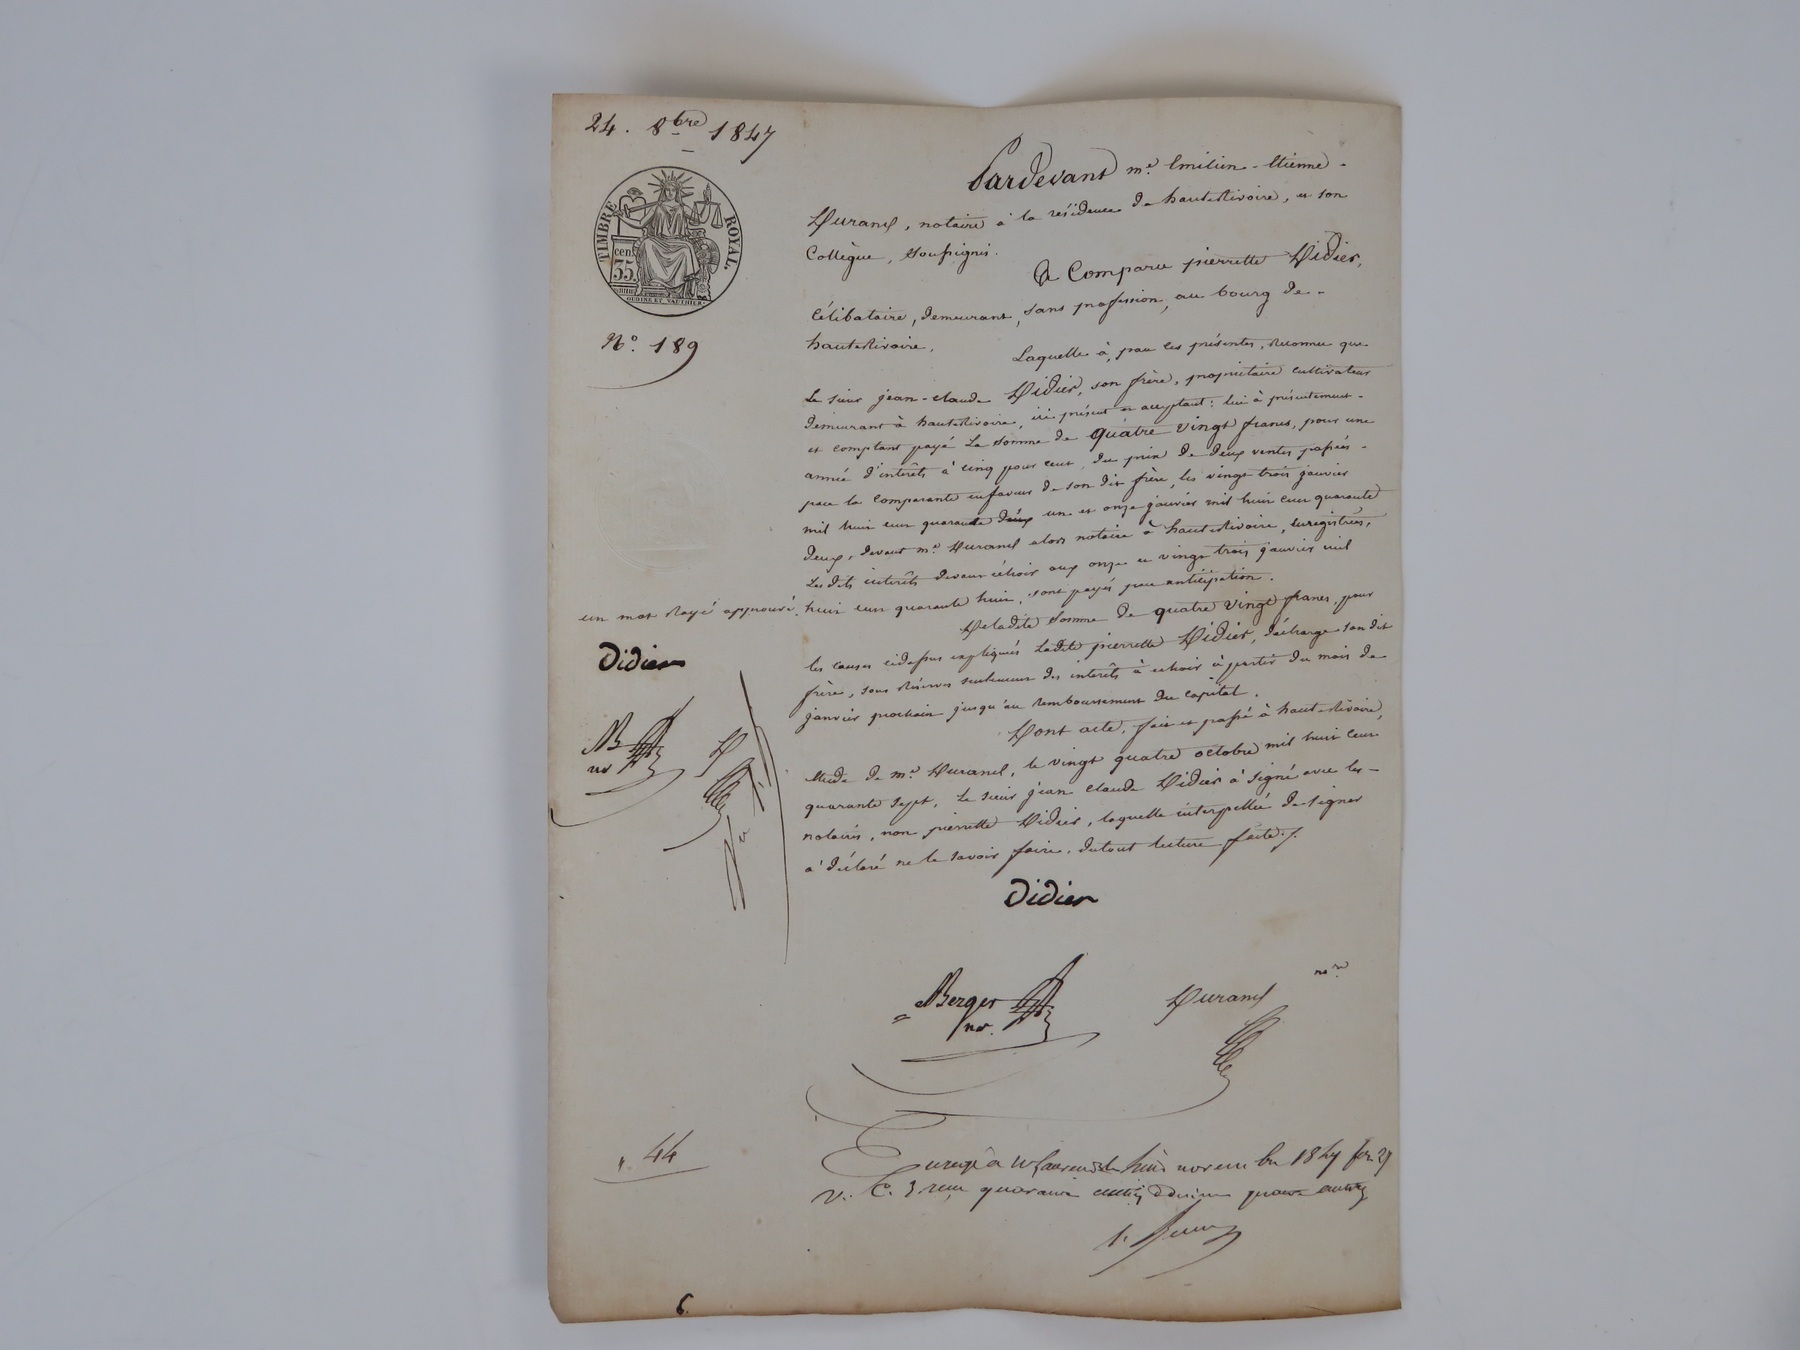 24. 8bre 1847
TIMBRE ROYAL.
cent. 35
OUDINÉ ET VAUTHIER
N° 189
Pardevant me. Emilien-Etienne
Durand, notaire à la résidence de hauterivoire, et son
Collègue, soussignés.
A Comparu pierrette Didier,
célibataire, demeurant, sans profession, au bourg de
hauterivoire,
Laquelle à, par ces présentes, reconnu que
le sieur jean-claude Didier, son frère, propriétaire cultivateur
demeurant à hauterivoire, ici présent et acceptant: lui à présentement
et comptant payé la somme de quatre vingt francs, pour une
année d'intérêts à cinq pour cent, du prix de deux ventes passées
par la comparante en faveur de son dit frère, les vingt trois janvier
mil huit cent quarante deux un et onze janvier mil huit cent quarante
deux, devant me. Durand alors notaire à hauterivoire, enregistrées,
Lesdits intérêts devant échoir aux onze et vingt trois janvier mil
huit cent quarante huit, sont payés par anticipation.
un mot rayé approuvé.
Didier
B
nre
D
De ladite somme de quatre vingt francs, pour
les causes cidessus expliquées Ladite pierrette Didier, décharge son dit
frère, sous réserves seulement des intérêts à échoir à partir du mois de
janvier prochain jusqu'au remboursement du capital.
Dont acte, fait et passé à hauterivoire,
étude de me. Durand, le vingt quatre octobre mil huit cent
quarante sept, le sieur jean claude Didier à signé avec les
notaires, non pierrette Didier, laquelle interpellée de signer
à déclaré ne le savoir faire, du tout lecture faite./.
Didier
Berger
nre.
Durand
nre
44
novembre 1847 fo. 29
v. C. 3 reçu quarante
6.